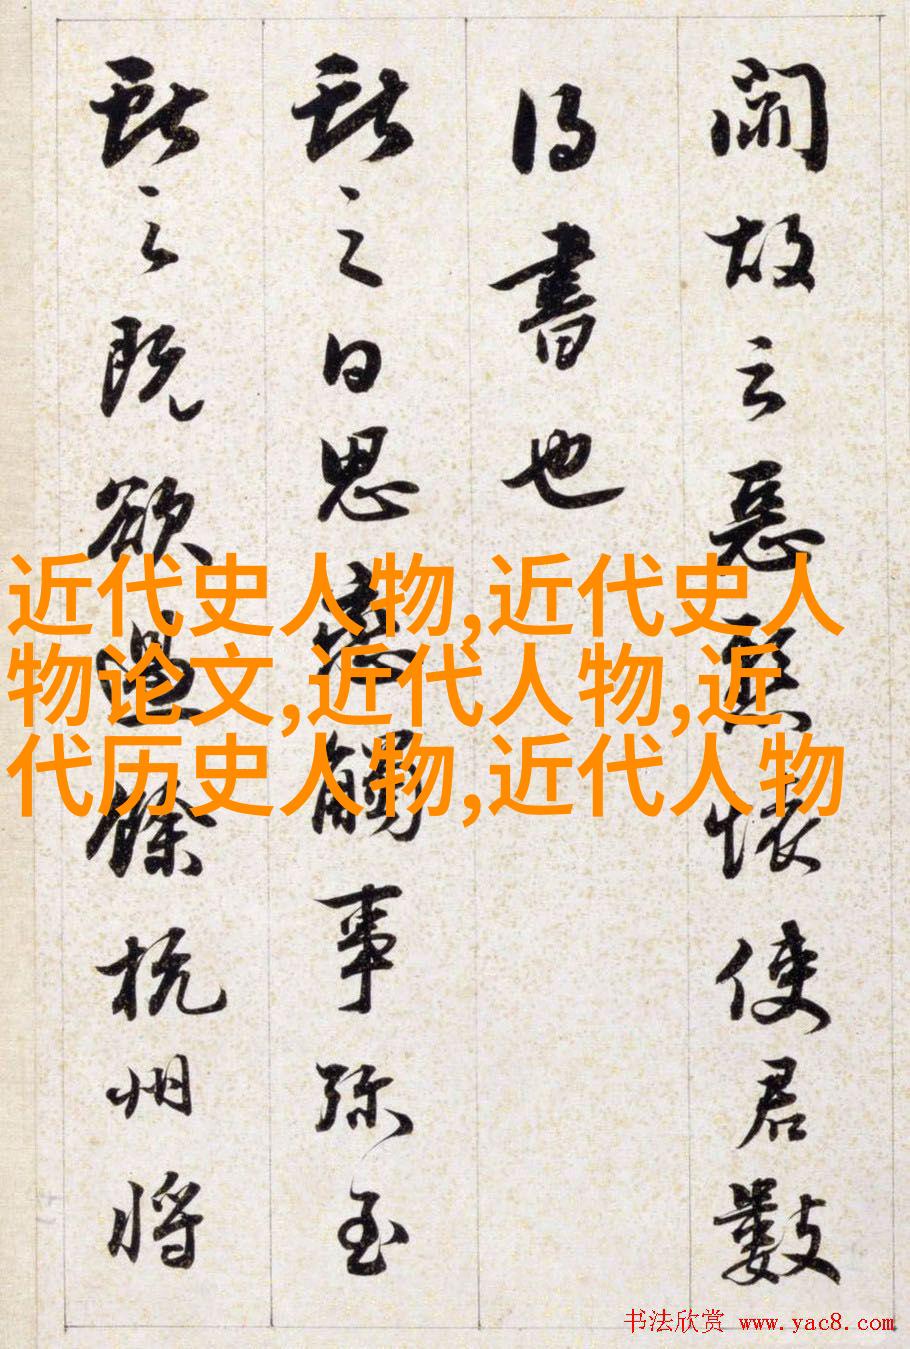 聞故云惡懸懷使君數
得書也
獻之白思戀觸事彌至
獻之既欲過餘杭州將
近代史人物,近代史人
物论文,近代人物,近
代历史人物,近代人物
书法欣赏 www.yac8.com